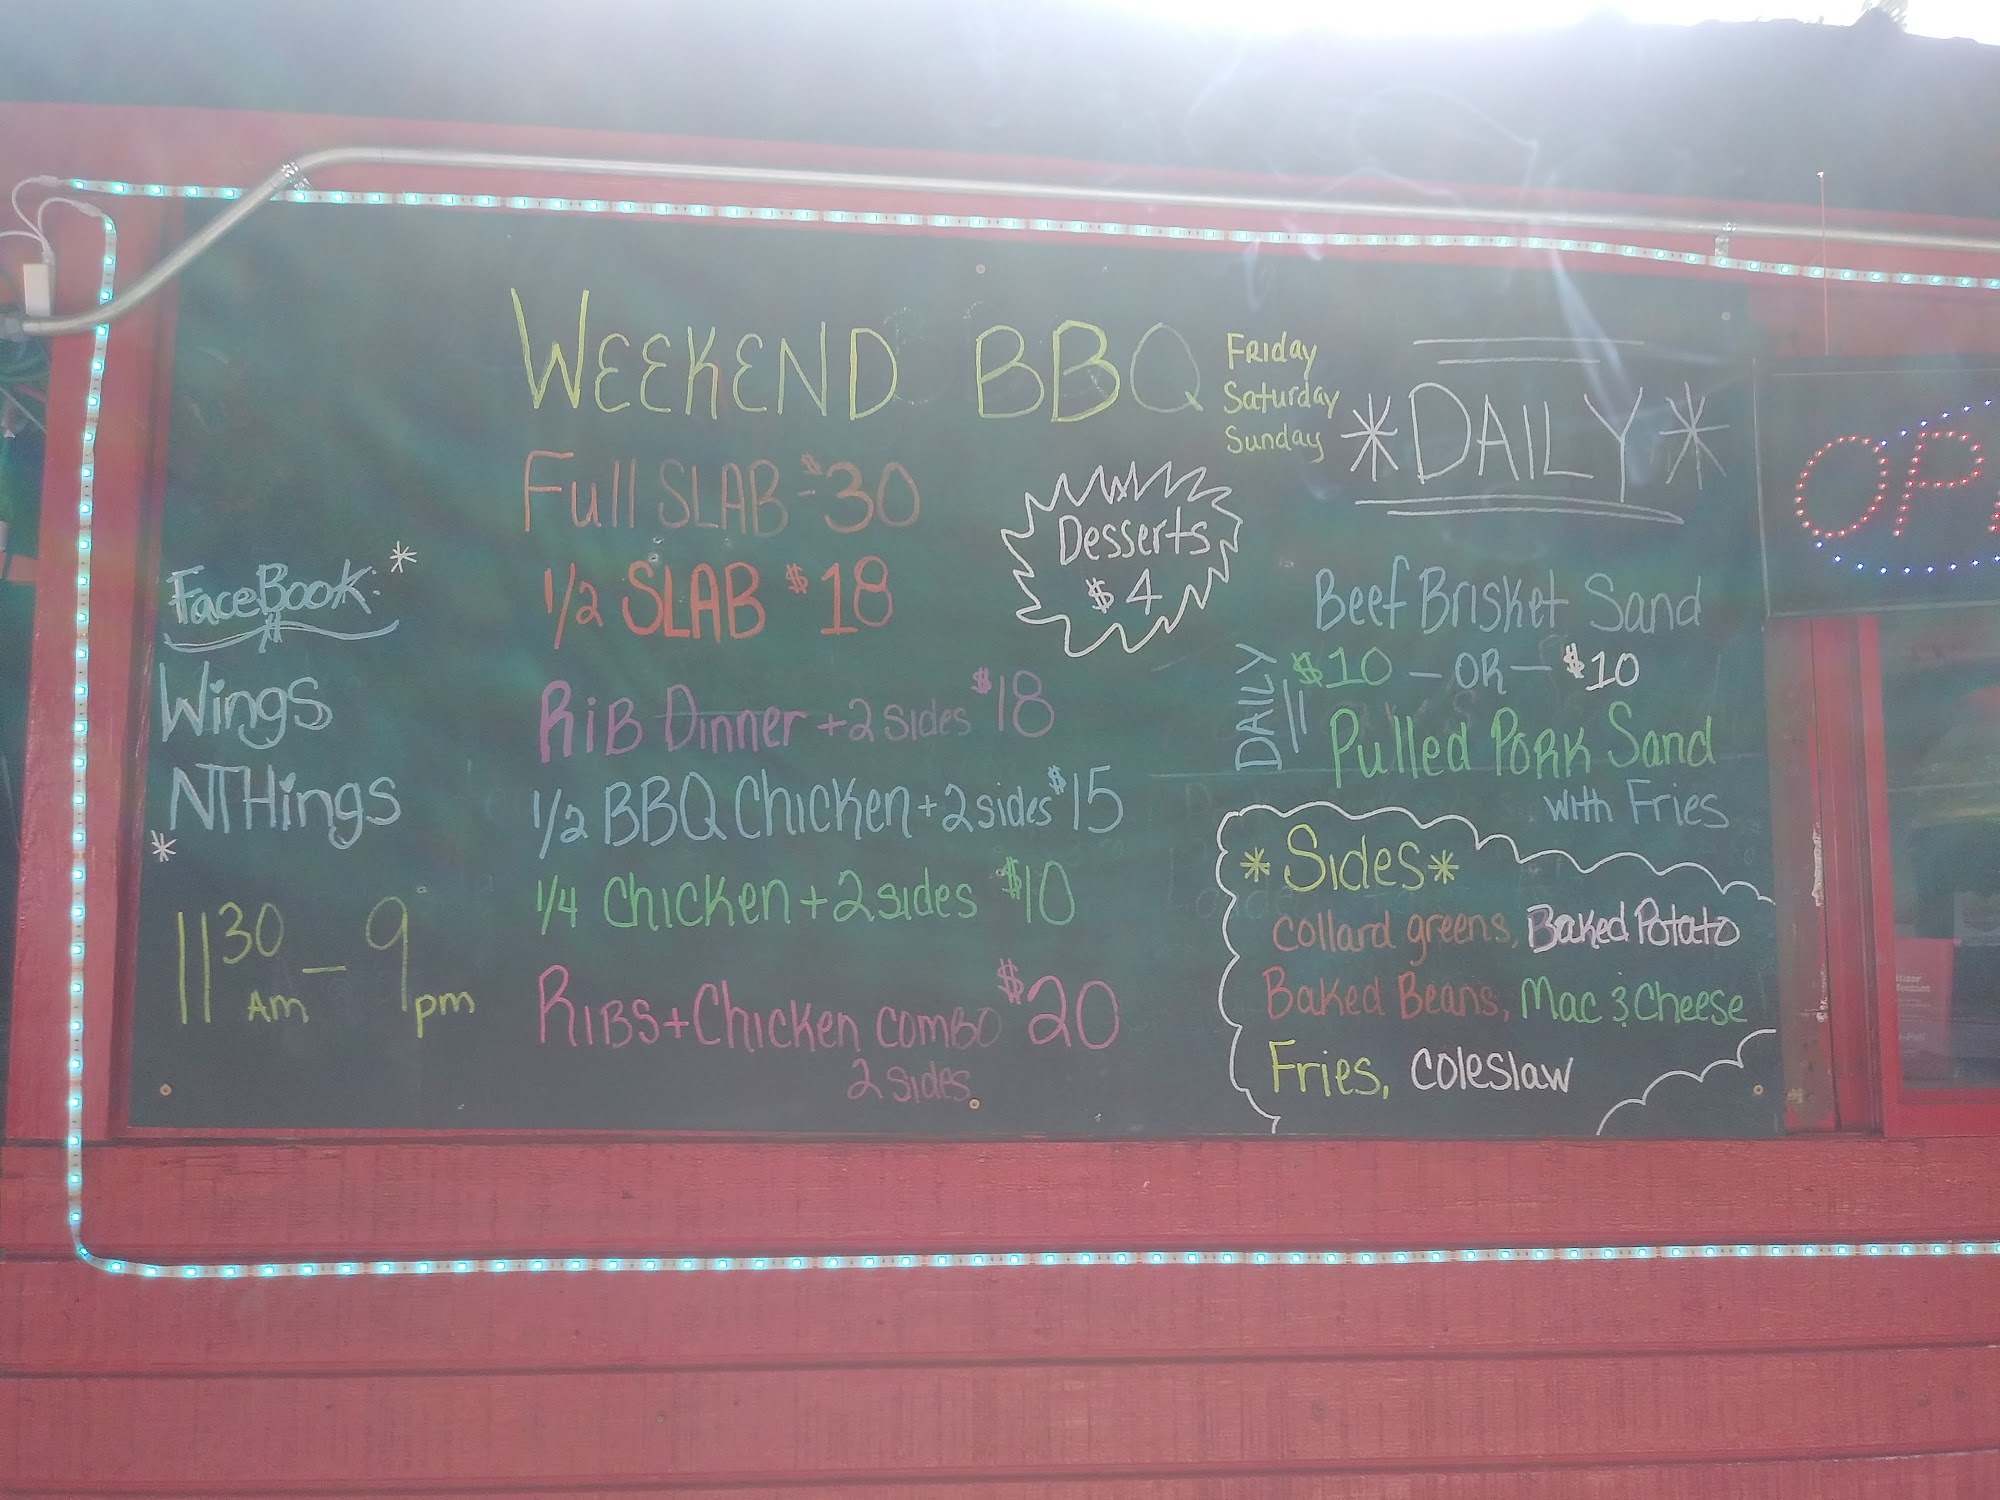 WEEKEND BBQ
Friday
Saturday
Sunday
Full SLAB - $30
1/2 SLAB $18
RiB Dinner + 2 sides $18
1/2 BBQ Chicken + 2 sides $15
1/4 Chicken + 2 sides $10
RIBS + Chicken comBO $20
2 sides
Desserts
$4
FaceBook:
Wings
NTHings
11 30 Am - 9 pm
*DAILY*
Beef Brisket Sand
DAILY
$10 - OR - $10
Pulled PORK Sand
with Fries
*Sides*
collard greens, Baked Potato
Baked Beans, Mac & Cheese
Fries, coleslaw